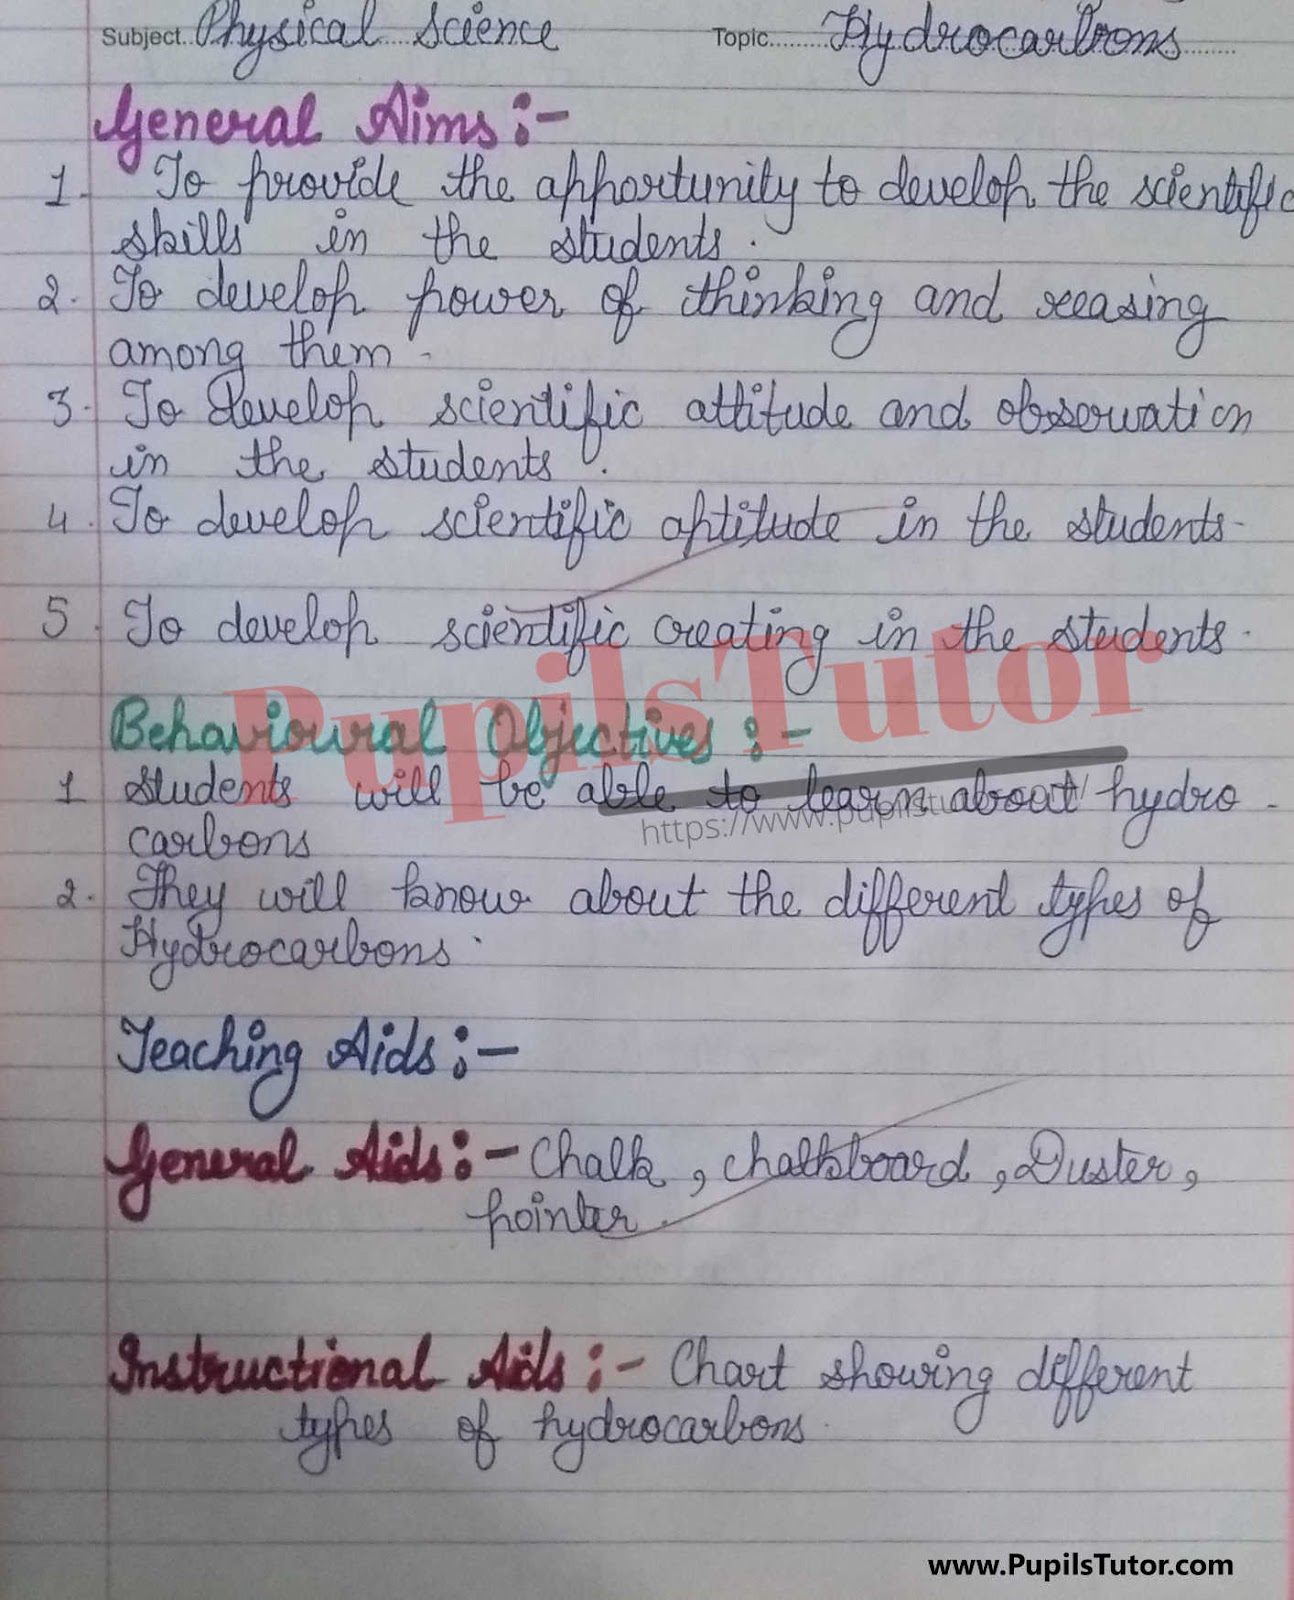 Subject.. Physical Science Topic......... Hydrocarbons
General Aims :-
1. To provide the apportunity to develop the scientific
skills in the students.
2. To develop power of thinking and reeasing
among them.
3. To develop scientific attitude and observation
in the students.
4. To develop scientific aptitude in the students.
5. To develop scientific creating in the students.
PupilsTutor
Behavioural Objectives :-
1 Students will be able to learn about hydro-
https://www.pupilstutor.com/
carbons
2. They will know about the different types of
Hydrocarbons.
Teaching Aids :-
General Aids :- Chalk, chalkboard, Duster,
pointer.
Instructional Aids :- Chart showing different
types of hydrocarbons.
www.PupilsTutor.com